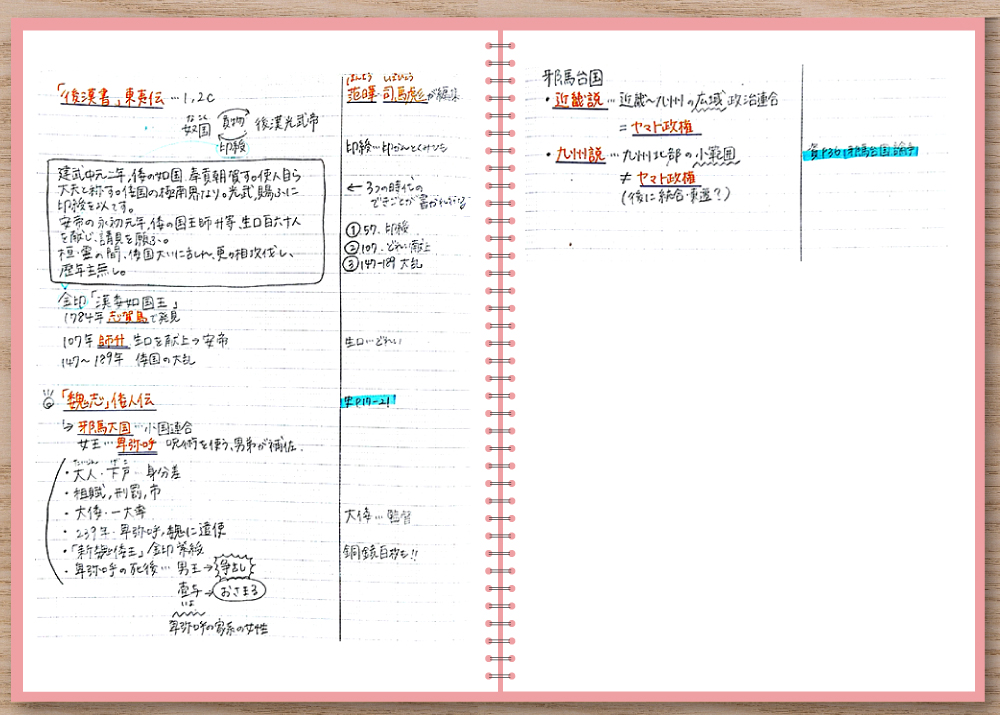 「後漢書」東夷伝 … 1,2C
なこく
奴国 貢物 後漢光武帝
印綬
建武中元二年、倭の奴国、奉貢朝賀す。使人自ら
大夫と称す。倭国の極南界なり。光武、賜ふに
印綬を以てす。
安帝の永初元年、倭の国王帥升等、生口百六十人
を献じ、請見を願ふ。
桓・霊の間、倭国大いに乱れ、更々相攻伐し、
歴年主無し。
金印「漢委奴国王」
1784年 志賀島で発見
107年 帥升 生口を献上→安帝
147〜189年 倭国の大乱
「魏志」倭人伝
↳ 邪馬大国…小国連合
女王…卑弥呼 呪術を使う、男弟が補佐.
・大人・下戸…身分差
・租賦,刑罰,市
・大倭・一大率
・239年…卑弥呼,魏に遣使
・「新魏倭王」金印紫綬
・卑弥呼の死後… 男王→争乱
壹与→おさまる
いよ
卑弥呼の家系の女性
はんよう しばひょう
范曄 司馬彪が編集
印綬…印かんとくみひも
← 3つの時代の
できごとが書かれている
①57. 印綬
②107. どれい献上
③147-189 大乱
生口…どれい
史P17-21
大倭…監督
銅鏡百枚も!!
邪馬台国
・近畿説…近畿〜九州の広域政治連合
=ヤマト政権
・九州説…九州北部の小範囲
≠ヤマト政権
(後に統合・東遷?)
資P36「邪馬台国論争